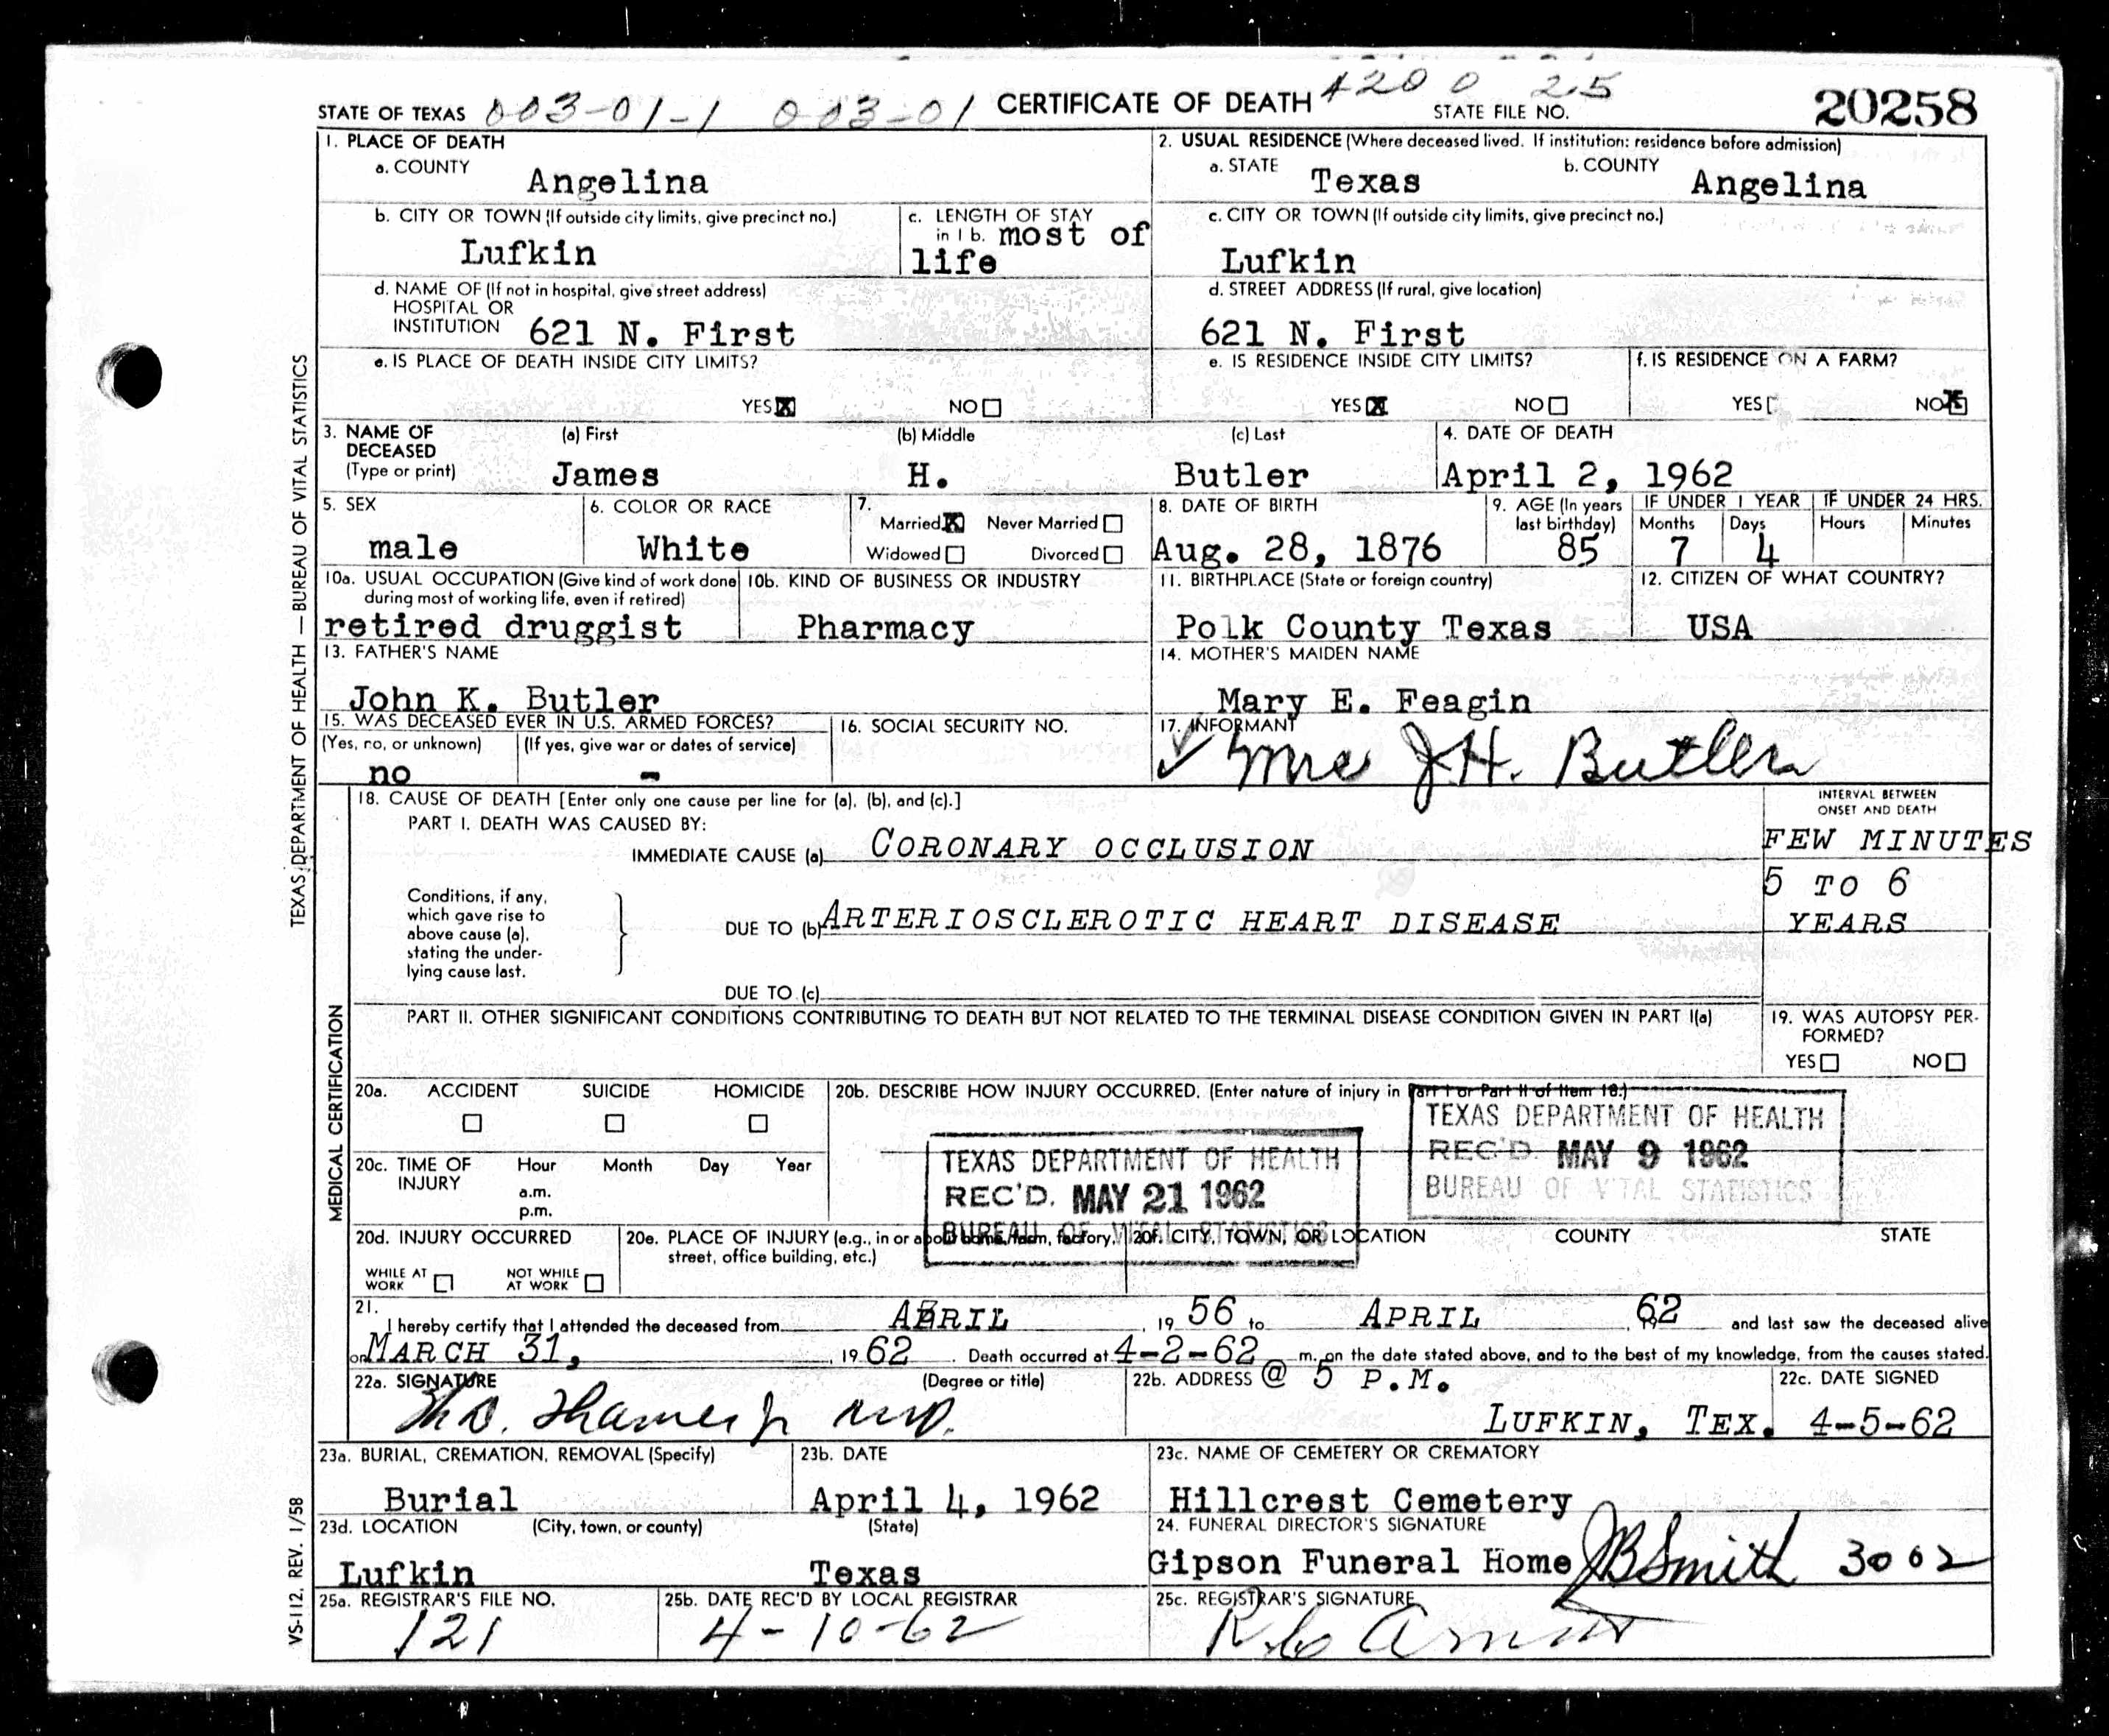 STATE OF TEXAS 003-01-1 003-01 CERTIFICATE OF DEATH 420 0 25 STATE FILE NO. 20258
1. PLACE OF DEATH
a. COUNTY
Angelina
2. USUAL RESIDENCE (Where deceased lived. If institution: residence before admission)
a. STATE Texas b. COUNTY Angelina
b. CITY OR TOWN (If outside city limits, give precinct no.)
Lufkin
c. LENGTH OF STAY
in 1 b. most of
life
c. CITY OR TOWN (If outside city limits, give precinct no.)
Lufkin
d. NAME OF (If not in hospital, give street address)
HOSPITAL OR
INSTITUTION 621 N. First
d. STREET ADDRESS (If rural, give location)
621 N. First
e. IS PLACE OF DEATH INSIDE CITY LIMITS?
YES X NO
e. IS RESIDENCE INSIDE CITY LIMITS?
YES X NO
f. IS RESIDENCE ON A FARM?
YES NO X
3. NAME OF
DECEASED
(Type or print)
(a) First (b) Middle (c) Last
James H. Butler
4. DATE OF DEATH
April 2, 1962
5. SEX
male
6. COLOR OR RACE
White
7.
Married X Never Married
Widowed Divorced
8. DATE OF BIRTH
Aug. 28, 1876
9. AGE (In years
last birthday)
85
IF UNDER 1 YEAR
Months Days
7 4
IF UNDER 24 HRS.
Hours Minutes
10a. USUAL OCCUPATION (Give kind of work done
during most of working life, even if retired)
retired druggist
10b. KIND OF BUSINESS OR INDUSTRY
Pharmacy
11. BIRTHPLACE (State or foreign country)
Polk County Texas
12. CITIZEN OF WHAT COUNTRY?
USA
13. FATHER'S NAME
John K. Butler
14. MOTHER'S MAIDEN NAME
Mary E. Feagin
15. WAS DECEASED EVER IN U.S. ARMED FORCES?
(Yes, no, or unknown) (If yes, give war or dates of service)
no -
16. SOCIAL SECURITY NO.
17. INFORMANT
Mrs J.H. Butler
18. CAUSE OF DEATH [Enter only one cause per line for (a), (b), and (c).]
PART I. DEATH WAS CAUSED BY:
IMMEDIATE CAUSE (a) CORONARY OCCLUSION
INTERVAL BETWEEN
ONSET AND DEATH
FEW MINUTES
Conditions, if any,
which gave rise to
above cause (a),
stating the under-
lying cause last.
DUE TO (b) ARTERIOSCLEROTIC HEART DISEASE
5 TO 6
YEARS
DUE TO (c)
PART II. OTHER SIGNIFICANT CONDITIONS CONTRIBUTING TO DEATH BUT NOT RELATED TO THE TERMINAL DISEASE CONDITION GIVEN IN PART I(a)
19. WAS AUTOPSY PER-
FORMED?
YES NO
20a. ACCIDENT SUICIDE HOMICIDE
20b. DESCRIBE HOW INJURY OCCURRED. (Enter nature of injury in Part I or Part II of Item 18.)
TEXAS DEPARTMENT OF HEALTH
REC'D MAY 9 1962
BUREAU OF VITAL STATISTICS
20c. TIME OF
INJURY
Hour Month Day Year
a.m.
p.m.
TEXAS DEPARTMENT OF HEALTH
REC'D. MAY 21 1962
BUREAU OF VITAL STATISTICS
20d. INJURY OCCURRED
WHILE AT
WORK
NOT WHILE
AT WORK
20e. PLACE OF INJURY (e.g., in or about home, farm, factory,
street, office building, etc.)
20f. CITY, TOWN, OR LOCATION COUNTY STATE
21.
I hereby certify that I attended the deceased from APRIL, 19 56 to APRIL, 62 and last saw the deceased alive
on MARCH 31, , 19 62 . Death occurred at 4-2-62 m. on the date stated above, and to the best of my knowledge, from the causes stated.
22a. SIGNATURE (Degree or title)
22b. ADDRESS @ 5 P.M.
LUFKIN, TEX.
22c. DATE SIGNED
4-5-62
23a. BURIAL, CREMATION, REMOVAL (Specify)
Burial
23b. DATE
April 4, 1962
23c. NAME OF CEMETERY OR CREMATORY
Hillcrest Cemetery
23d. LOCATION (City, town, or county) (State)
Lufkin Texas
24. FUNERAL DIRECTOR'S SIGNATURE
Gipson Funeral Home JB Smith 3002
25a. REGISTRAR'S FILE NO.
121
25b. DATE REC'D BY LOCAL REGISTRAR
4-10-62
25c. REGISTRAR'S SIGNATURE
TEXAS DEPARTMENT OF HEALTH — BUREAU OF VITAL STATISTICS
MEDICAL CERTIFICATION
VS-112. REV. 1/58